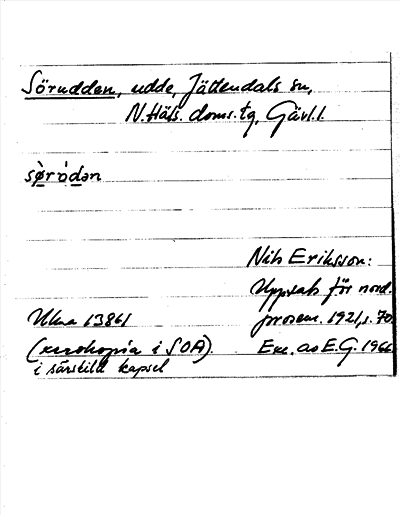 Sörudden, udde, Jättendals sn,
N. Häls. doms. tg, Gävl. l.
sø̀rúdən
Nils Eriksson:
Uppsats för nord.
prosem. 1921, s. 70
Ulma 13861
(xerokopia i SOA).
i särskild kapsel
Exc. av E.G. 1966